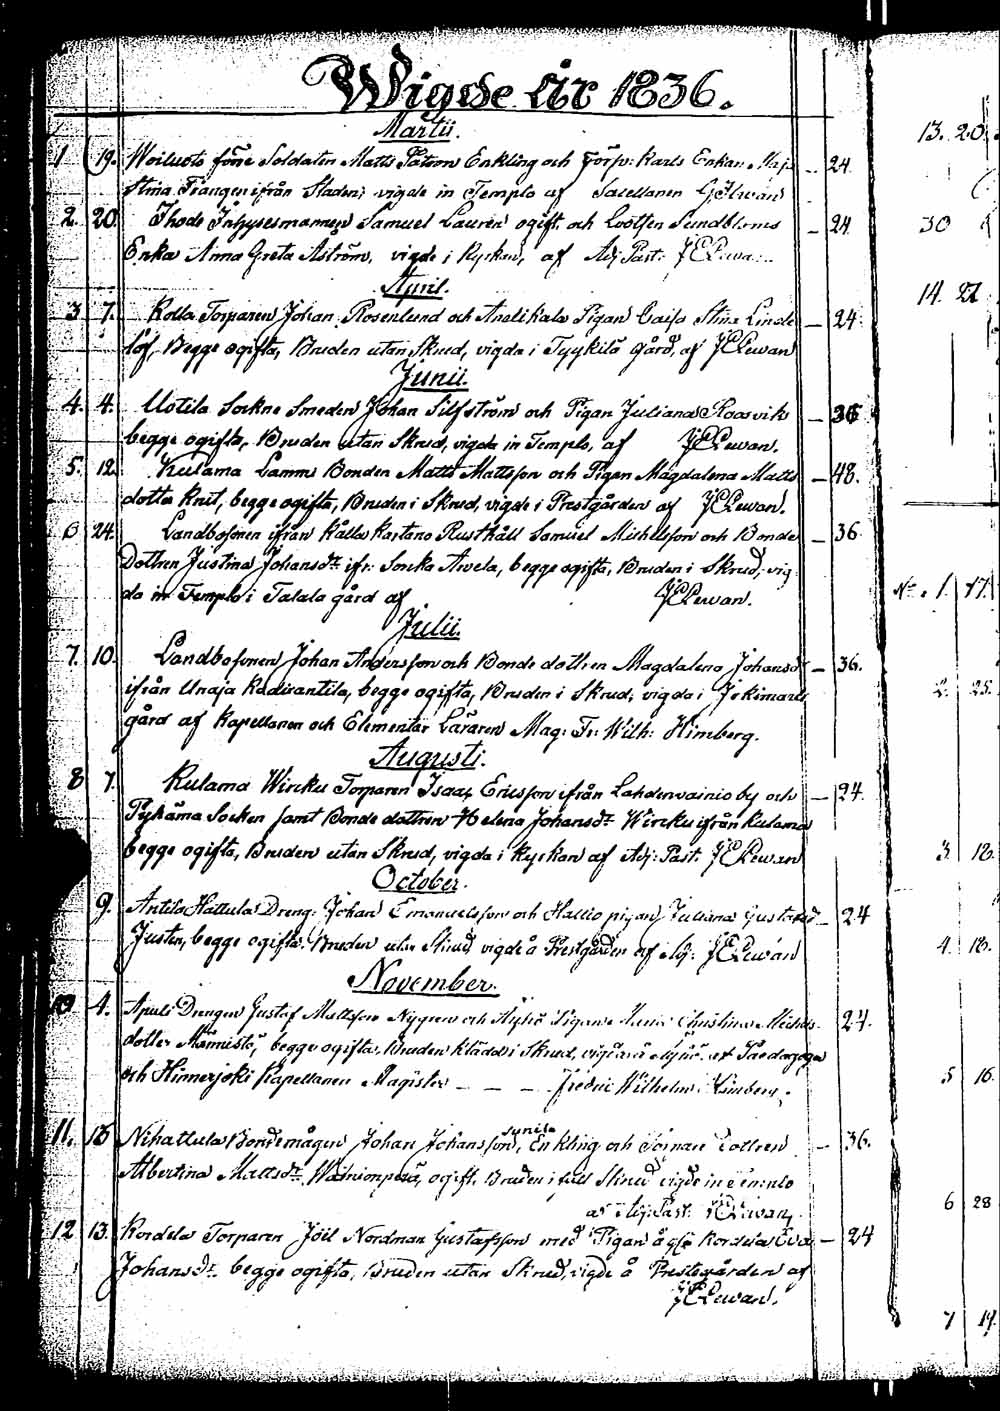 Wigde År 1836.
Martii.
1 19. Woiluoto förre Soldaten Matts Fatron Enkling och Karls Enkan Maja 24
Stina ifrån Staden; vigde in Templo af Sacellanen
2. 20. Ihode Inhysesmannen Samuel Lauren ogift, och Lootsen Sundbloms 24
Enka Anna Greta Aström, vigde i Kyrkan, af Adj: Past:
April.
3 7. Kolla Torparen Johan Rosenlund och Anelikala Pigan Caisa Stina Linde 24
löf, Begge ogifta, Bruden utan Skrud, vigde i Tyykilä gård, af JCLewan
Junii.
4. 4. Uotila Sockne Smeden Johan Silfström och Pigan Juliana Roosvik 36
begge ogifta, Bruden utan Skrud, vigde in Templo, af JCLewan.
5. 12. Kulama Lammi Bonden Matts Mattsson och Pigan Magdalena Matts 48.
dotter Knit, begge ogifta, Bruden i Skrud, vigde i Prestgården af JCLewan.
6 24. Landbosonen ifrån Kålla Kartano Rusthåll Samuel Michelsson och Bonde 36
Dottren Justina Johansdr ifr: Sorka Arvela, begge ogifta, Bruden i Skrud, vig
de in Templo i Talala gård af JCLewan.
Julii.
7. 10. Landbosonen Johan Andersson och Bonde dottren Magdalena Johansdr 36.
ifrån Unaja Radirantila, begge ogifta, Bruden i Skrud, vigde i Jokimarts
gård af Kapellanen och Elementar Läraren Mag: Fr: Wilh: Himberg.
Augusti.
8 7. Kulama Wircku Torparen Isaac Ericsson ifrån Lahdenvainio by och 24.
Pyhäma Socken samt Bonde dottren Helena Johansdr Wircku ifrån Kulama
begge ogifta, Bruden utan Skrud, vigde i Kyrkan af Adj: Past: JCLewan
October.
9. Antila Hattula Dreng: Johan Emanuelsson och Hallio pigan Juliana Gustafsd 24
Justen, begge ogifta. Bruden utan Skrud vigde å Prestgården af Adj: JCLewan
November.
10 4. Drengen Gustaf Mattsson Nygren och Pigan Maria Christina Michels 24.
dotter Männistö, begge ogifta, Bruden klädd i Skrud, af Paedagogen
och Hinnerjoki Kapellanen Magister — — — Fredric Wilhelm Himberg.
Junila
11. 18 Nihattula Bondemågen Johan Johansson, Enkling och Dottren 36.
Albertina Mattsdr Wainionperä, ogift, Bruden i full Skrud vigde in Templo
af Adj: Past: JCLewan.
12 13. Kordela Torparen Joël Nordman Gustafsson med Pigan Kordela Eva 24
Johansdr begge ogifta, Bruden utan Skrud, vigde å Prestgården af
JCLewan.
13. 20.
30
14. 22
No. 1. 17.
2. 25.
3. 18.
4. 18.
5 16.
6 28
7 14.